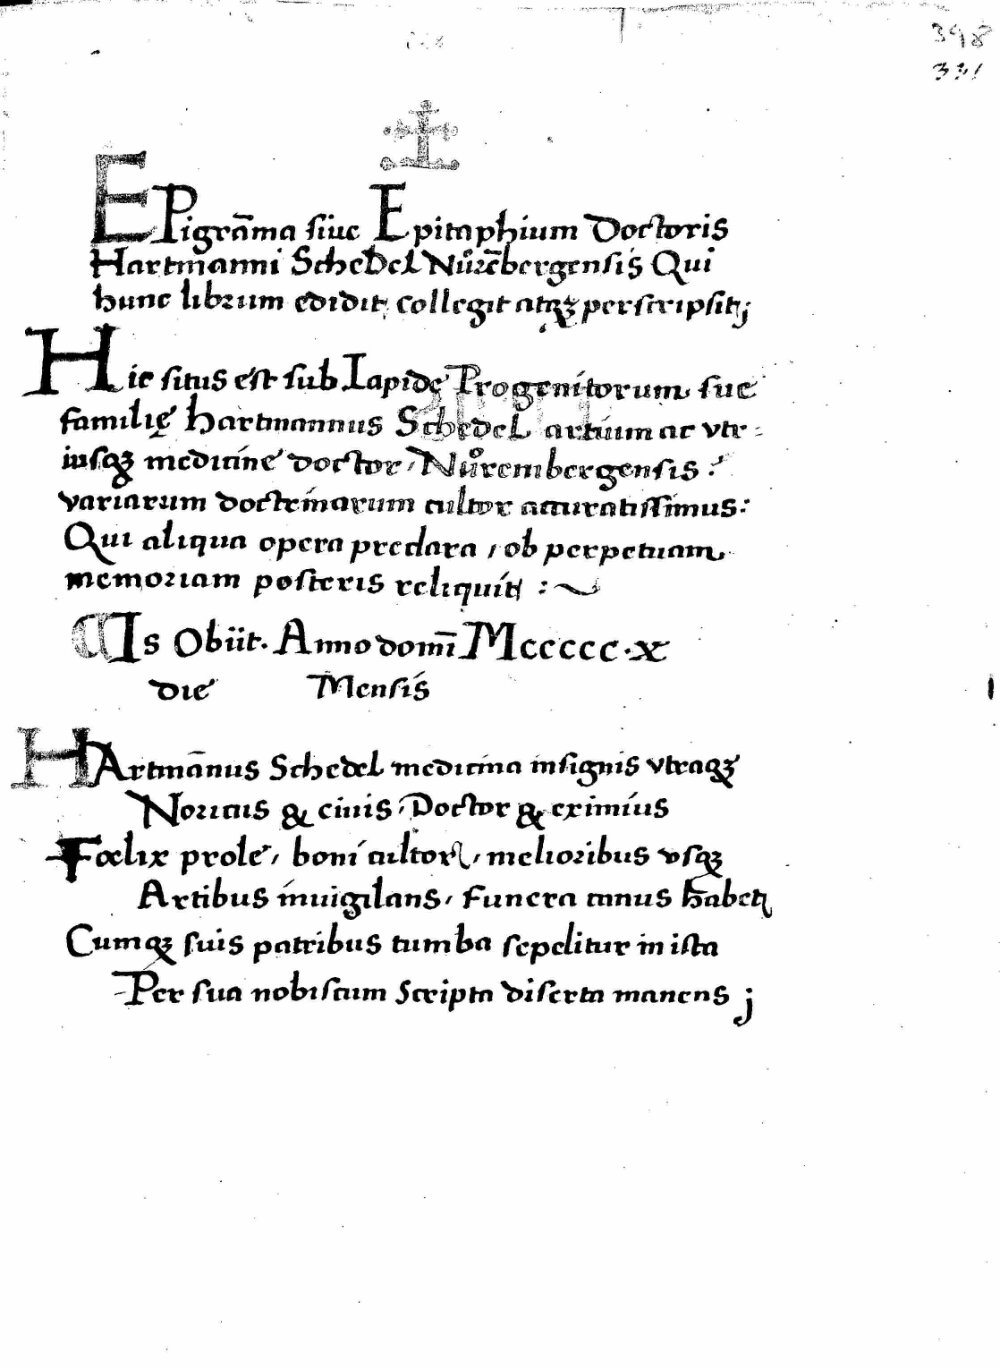 398
331
EPigrāma siue Epitaphium Doctoris
Hartmanni Schedel Nůrēbergensis Qui
hunc librum edidit collegit atqꝫ perscripsit;
Hic situs est sub Lapide Progenitorum sue
familię Hartmannus Schedel artium ac vtr-
iusqꝫ medicine doctor, Nůrembergensis :
variarum doctrinarum cultor accuratissimus:
Qui aliqua opera preclara, ob perpetuam
memoriam posteris reliquit :~
Is Obiit. Anno domī Mccccc.x
die Mensis
HArtmānus Schedel medicina insignis vtraqꝫ
Noricus & ciuis, Doctor & eximius
Foelix prole, boni cultor, melioribus vsqꝫ
Artibus inuigilans, Funera canus habet
Cumqꝫ suis patribus tumba sepelitur in ista
Per sua nobiscum Scripta diserta manens ;